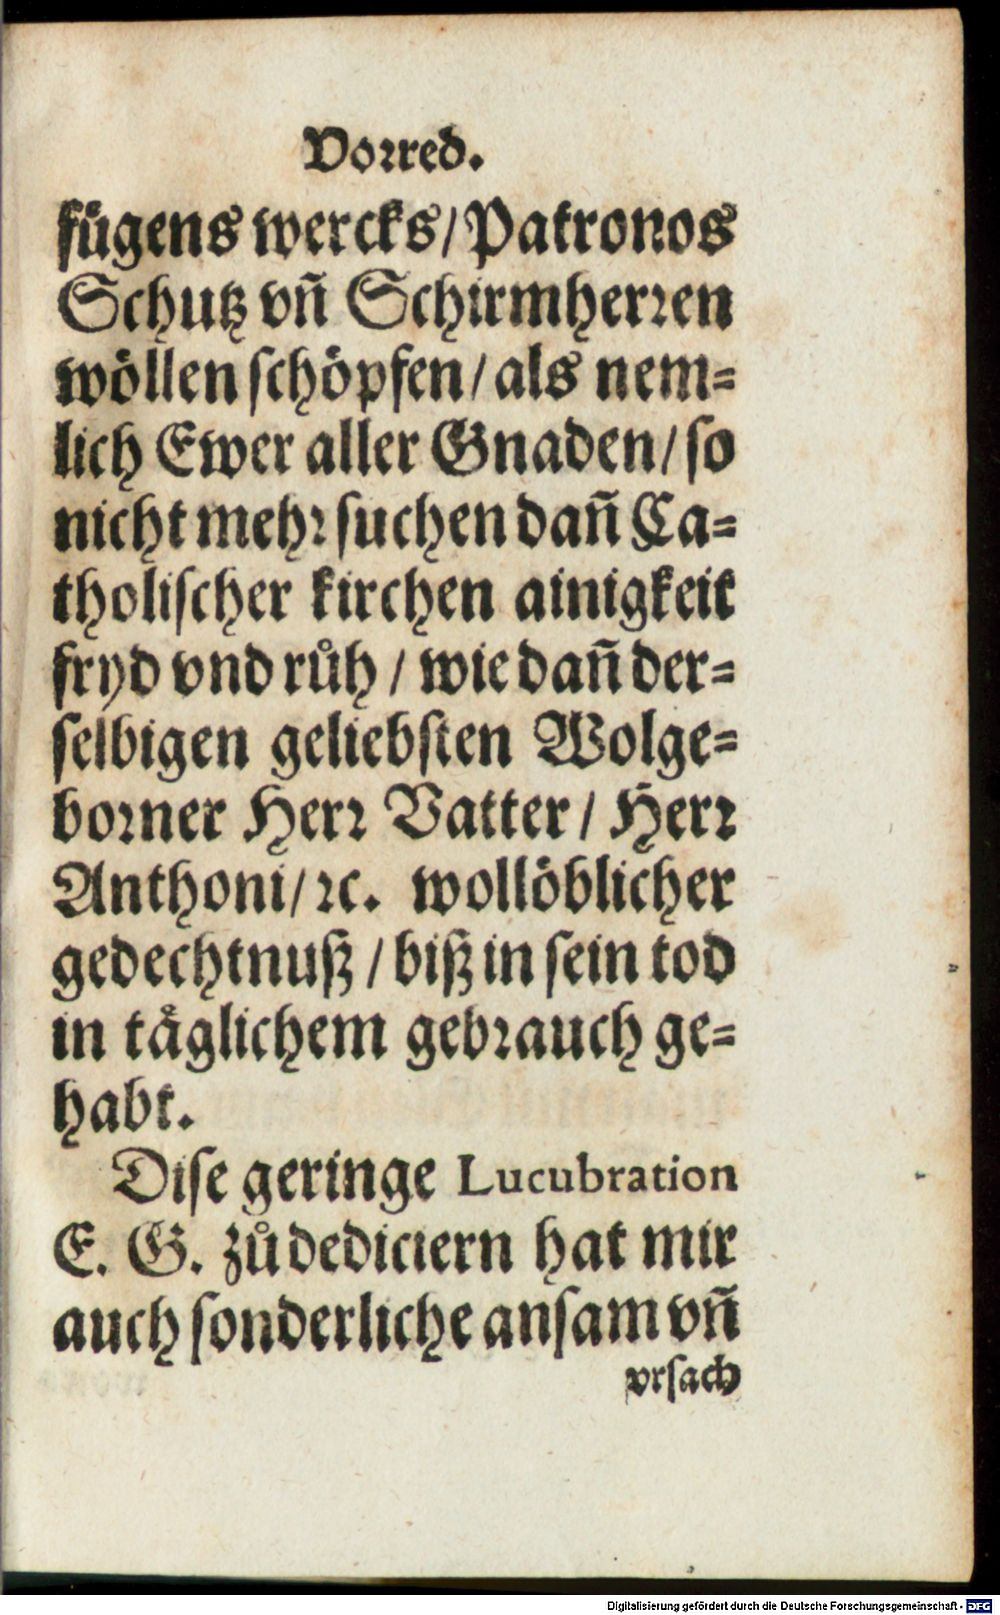 Vorred.
fůgens wercks/Patronos
Schutz vñ Schirmherren
wöllen schöpfen/als nem-
lich Ewer aller Gnaden/so
nicht mehr suchen dañ Ca-
tholischer kirchen ainigkeit
fryd vnd růh/wie dañ der-
selbigen geliebsten Wolge-
borner Herr Vatter/Herr
Anthoni/ꝛc. wollöblicher
gedechtnuß/biß in sein tod
in täglichem gebrauch ge-
habt.
Dise geringe Lucubration
E. G. zů dediciern hat mir
auch sonderliche ansam vñ
vrsach
Digitalisierung gefördert durch die Deutsche Forschungsgemeinschaft - DFG